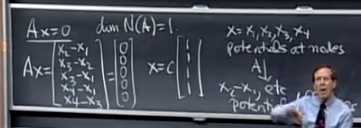 Ax=0 dim N(A)=1.
Ax= [x₂-x₁ x₃-x₂ x₃-x₁ x₄-x₁ x₄-x₃] = [0 0 0 0 0] x=c [1 1 1 1]
x=x₁,x₂,x₃,x₄
potentials at nodes
A
x₂-x₁, etc
poten